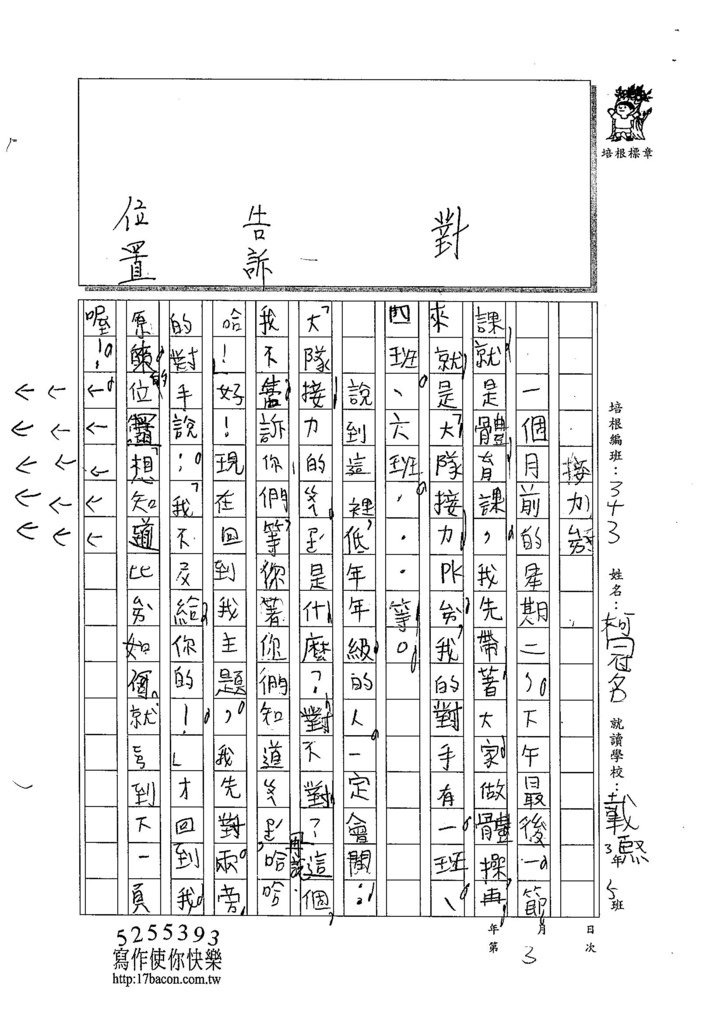 對
告訴
位置
培根標章
培根編班：343 姓名：柯冠名 就讀學校：載熙 3年 5班
日次
月 3
年第
接力
一個月前的星期二，下午最後一節
課就是體育課，我先帶著大家做體操再
來就是大隊接力PK，我的對手有一班、
四班、六班...等。
說到這裡低年級的人一定會問：
「大隊接力的ㄠ是什麼？對不對？這個
我不告訴你們等你著你們知道ㄠ哈哈
再說
哈！好！現在回到我主題，我先對兩旁
的對手說：「我不及給你的！」才回到我
原來的位置想知道比如何就到下一頁
喔！
5255393
寫作使你快樂
http:17bacon.com.tw